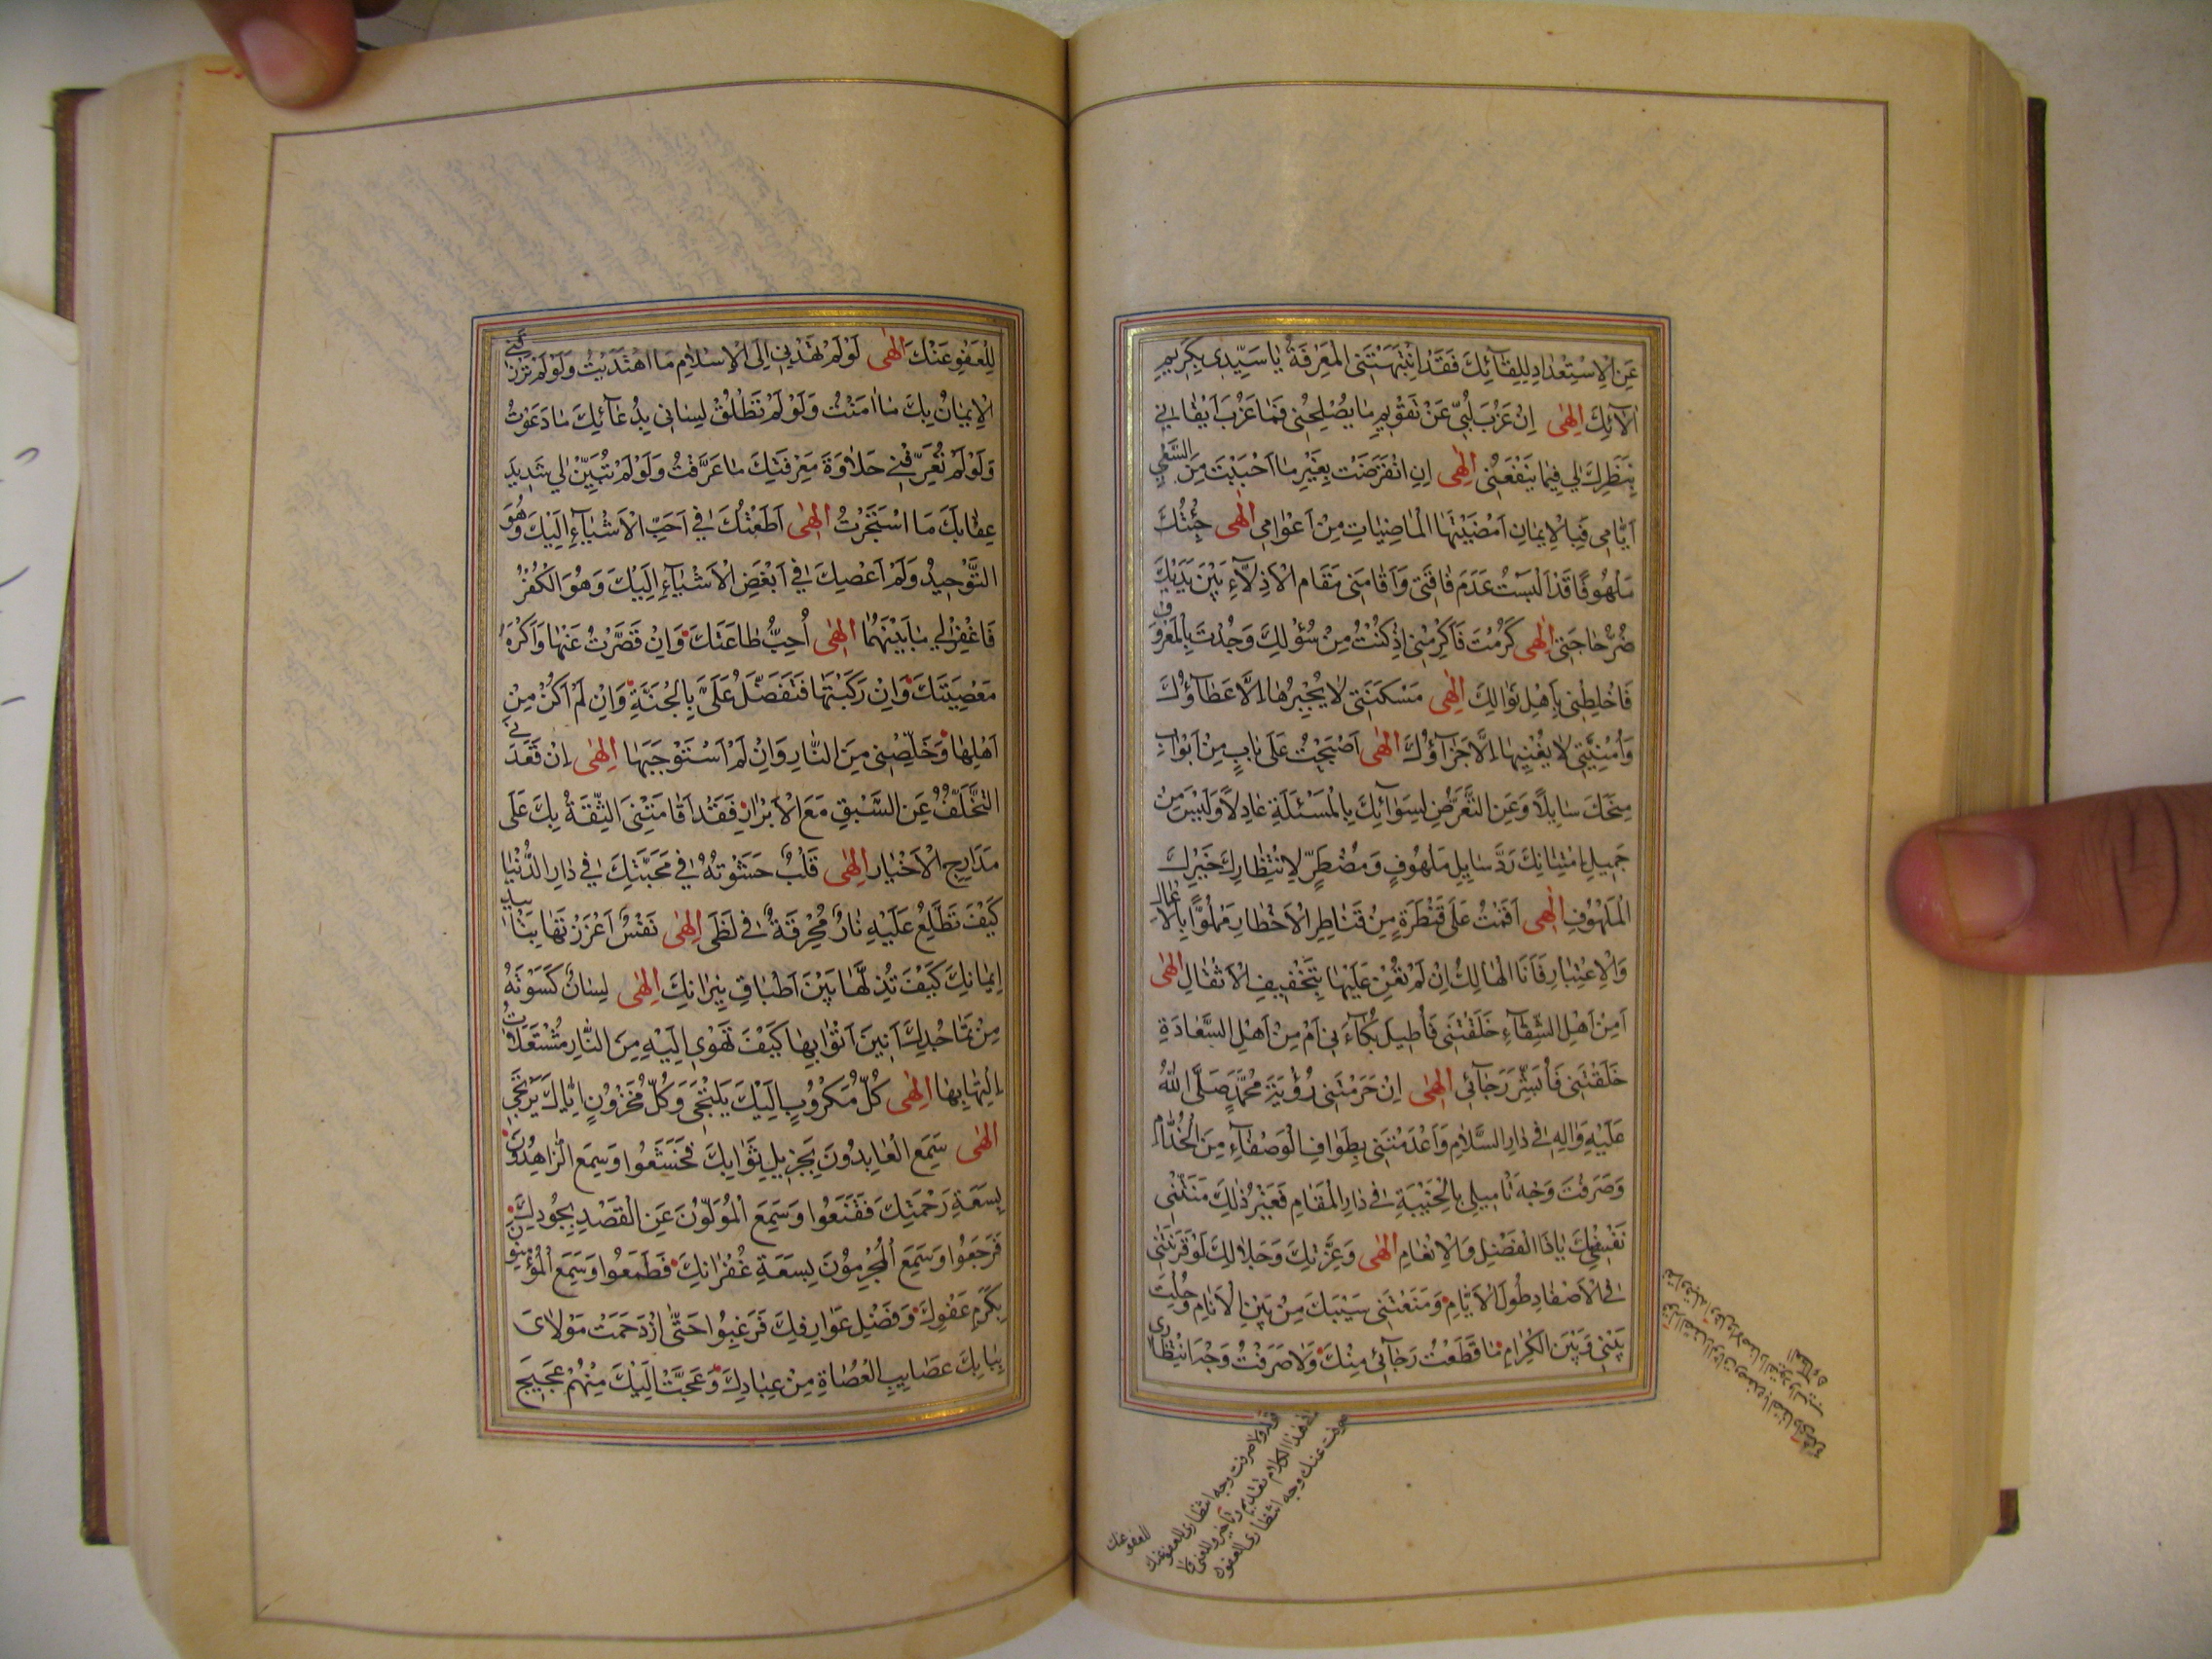 عَنِ الْاِسْتِعْدَادِ لِلِقَآئِكَ فَقَدْ اَنْبَهَتْنِى الْمَعْرِفَةُ يَا سَيِّدِى بِكَرِيمِ
اٰلَآئِكَ اِلٰهِى اِنْ عَزُبَ لُبِّى عَنْ تَقْوِيمِ مَا يُصْلِحُنِى فَمَا عَزُبَ اِيقَانِى
بِنَظَرِكَ لِى فِيمَا يَنْفَعُنِى اِلٰهِى اِنِ انْقَرَضَتْ بِغَيْرِ مَا اَحْبَبْتَ مِنَ السَّعْىِ
اَيَّامِى فَبِالْاِيمَانِ اَمْضَيْتُهَا الْمَاضِيَاتِ مِنْ اَعْوَامِى اِلٰهِى جِئْتُكَ
مَلْهُوفًا قَدْ اُلْبِسْتُ عَدَمَ فَاقَتِى وَاَقَامَنِى مَقَامَ الْاَذِلَّآءِ بَيْنَ يَدَيْكَ
ضُرُّ حَاجَتِى اِلٰهِى كَرُمْتَ فَاَكْرِمْنِى اِذْ كُنْتُ مِنْ سُؤَّلِكَ وَجُدْتَ بِالْمَعْرُوفِ
فَاخْلِطْنِى بِاَهْلِ نَوَالِكَ اِلٰهِى مَسْكَنَتِى لَا يُجْبِرُهَا اِلَّا عَطَآؤُكَ
وَاُمْنِيَّتِى لَا يُغْنِيهَا اِلَّا جَزَآؤُكَ اِلٰهِى اَصْبَحْتُ عَلَى بَابٍ مِنْ اَبْوَابِ
مِنَحِكَ سَايِلًا وَعَنِ التَّعَرُّضِ لِسِوَآئِكَ بِالْمَسْئَلَةِ عَادِلًا وَلَيْسَ مِنْ
جَمِيلِ امْتِنَانِكَ رَدُّ سَايِلٍ مَلْهُوفٍ وَمُضْطَرٍّ لِانْتِظَارِكَ خَيْرِكَ
الْمَلْهُوفِ اِلٰهِى اَقَمْتُ عَلَى قَنْطَرَةٍ مِنْ قَنَاطِرِ الْاَخْطَارِ مَمْلُوًّا بِالْاَعْمَالِ
وَالْاِعْتِبَارِ فَاَنَا الْهَالِكُ اِنْ لَمْ تُعِنْ عَلَيْهَا بِتَخْفِيفِ الْاَثْقَالِ اِلٰهِى
اَمِنْ اَهْلِ الشَّقَآءِ خَلَقْتَنِى فَاُطِيلَ بُكَآءَنِى اَمْ مِنْ اَهْلِ السَّعَادَةِ
خَلَقْتَنِى فَاُبَشِّرَ رَجَآئِى اِلٰهِى اِنْ حَرَمْتَنِى رُؤْيَةَ مُحَمَّدٍ صَلَّى اللّٰهُ
عَلَيْهِ وَاٰلِهِ فِى دَارِ السَّلَامِ وَاَعْدَمْتَنِى تِطْوَافَ الْوُصَفَآءِ مِنَ الْخُدَّامِ
وَصَرَفْتَ وَجْهَ تَاْمِيلِى بِالْخَيْبَةِ فِى دَارِ الْمُقَامِ فَغَيْرُ ذٰلِكَ مَنَّتْنِى
نَفْسِى مِنْكَ يَا ذَا الْفَضْلِ وَالْاِنْعَامِ اِلٰهِى وَعِزَّتِكَ وَجَلَالِكَ لَوْ قَرَنْتَنِى
فِى الْاَصْفَادِ طُولَ الْاَيَّامِ وَمَنَعْتَنِى سَيْبَكَ مِنْ بَيْنِ الْاَنَامِ وَحُلْتَ
بَيْنِى وَبَيْنَ الْكِرَامِ مَا قَطَعْتُ رَجَآئِى مِنْكَ وَلَا صَرَفْتُ وَجْهَ انْتِظَارِى
قوله ولا صرفت وجه انتظارى للعفو عنك
فى هذا الكلام تقديم وتأخير والمعنى ولا
صرفت عنك وجه انتظارى للعفو
للعفو عنك
لِلْعَفْوِ عَنْكَ اِلٰهِى لَوْ لَمْ تَهْدِنِى اِلَى الْاِسْلَامِ مَا اهْتَدَيْتُ وَلَوْ لَمْ تَرْزُقْنِى
الْاِيمَانَ بِكَ مَا اٰمَنْتُ وَلَوْ لَمْ تُطْلِقْ لِسَانِى بِدُعَآئِكَ مَا دَعَوْتُ
وَلَوْ لَمْ تُعَرِّفْنِى حَلَاوَةَ مَعْرِفَتِكَ مَا عَرَفْتُ وَلَوْ لَمْ تُبَيِّنْ لِى شَدِيدَ
عِقَابِكَ مَا اسْتَجَرْتُ اِلٰهِى اَطَعْتُكَ فِى اَحَبِّ الْاَشْيَآءِ اِلَيْكَ وَهُوَ
التَّوْحِيدُ وَلَمْ اَعْصِكَ فِى اَبْغَضِ الْاَشْيَآءِ اِلَيْكَ وَهُوَ الْكُفْرُ
فَاغْفِرْ لِى مَا بَيْنَهُمَا اِلٰهِى اُحِبُّ طَاعَتَكَ وَاِنْ قَصَّرْتُ عَنْهَا وَاَكْرَهُ
مَعْصِيَتَكَ وَاِنْ رَكِبْتُهَا فَتَفَضَّلْ عَلَىَّ بِالْجَنَّةِ وَاِنْ لَمْ اَكُنْ مِنْ
اَهْلِهَا وَخَلِّصْنِى مِنَ النَّارِ وَاِنْ لَمْ اَسْتَوْجِبْهَا اِلٰهِى اِنْ قَعَدَ بِى
التَّخَلُّفُ عَنِ السَّبْقِ مَعَ الْاَبْرَارِ فَقَدْ اَقَامَتْنِىَ الثِّقَةُ بِكَ عَلَى
مَدَارِجِ الْاَخْيَارِ اِلٰهِى قَلْبٌ حَشَوْتُهُ فِى مَحَبَّتِكَ فِى دَارِ الدُّنْيَا
كَيْفَ تَطَّلِعُ عَلَيْهِ نَارٌ مُحْرِقَةٌ فِى لَظَى اِلٰهِى نَفْسٌ اَعْزَزْتَهَا بِتَأْيِيدِ
اِيمَانِكَ كَيْفَ تُذِلُّهَا بَيْنَ اَطْبَاقِ نِيرَانِكَ اِلٰهِى لِسَانٌ كَسَوْتَهُ
مِنْ تَمَاجِدِكَ اَنِيقَ اَثْوَابِهَا كَيْفَ تَهْوِى اِلَيْهِ مِنَ النَّارِ مُشْتَعِلَاتُ
اِلْتِهَابِهَا اِلٰهِى كُلُّ مَكْرُوبٍ اِلَيْكَ يَلْتَجِى وَكُلُّ مَحْزُونٍ اِيَّاكَ يَرْتَجِى
اِلٰهِى سَمِعَ الْعَابِدُونَ بِجَزِيلِ ثَوَابِكَ فَخَشَعُوا وَسَمِعَ الزَّاهِدُونَ
بِسَعَةِ رَحْمَتِكَ فَقَنَعُوا وَسَمِعَ الْمُوَلُّونَ عَنِ الْقَصْدِ بِجُودِكَ
فَرَجَعُوا وَسَمِعَ الْمُجْرِمُونَ بِسَعَةِ غُفْرَانِكَ فَطَمِعُوا وَسَمِعَ الْمُؤْمِنُونَ
بِكَرَمِ عَفْوِكَ وَفَضْلِ عَوَارِفِكَ فَرَغِبُوا حَتَّى ازْدَحَمَتْ مَوْلَاىَ
بِبَابِكَ عَصَايِبُ الْعُصَاةِ مِنْ عِبَادِكَ وَعَجَّتْ اِلَيْكَ مِنْهُمْ عَجِيجَ